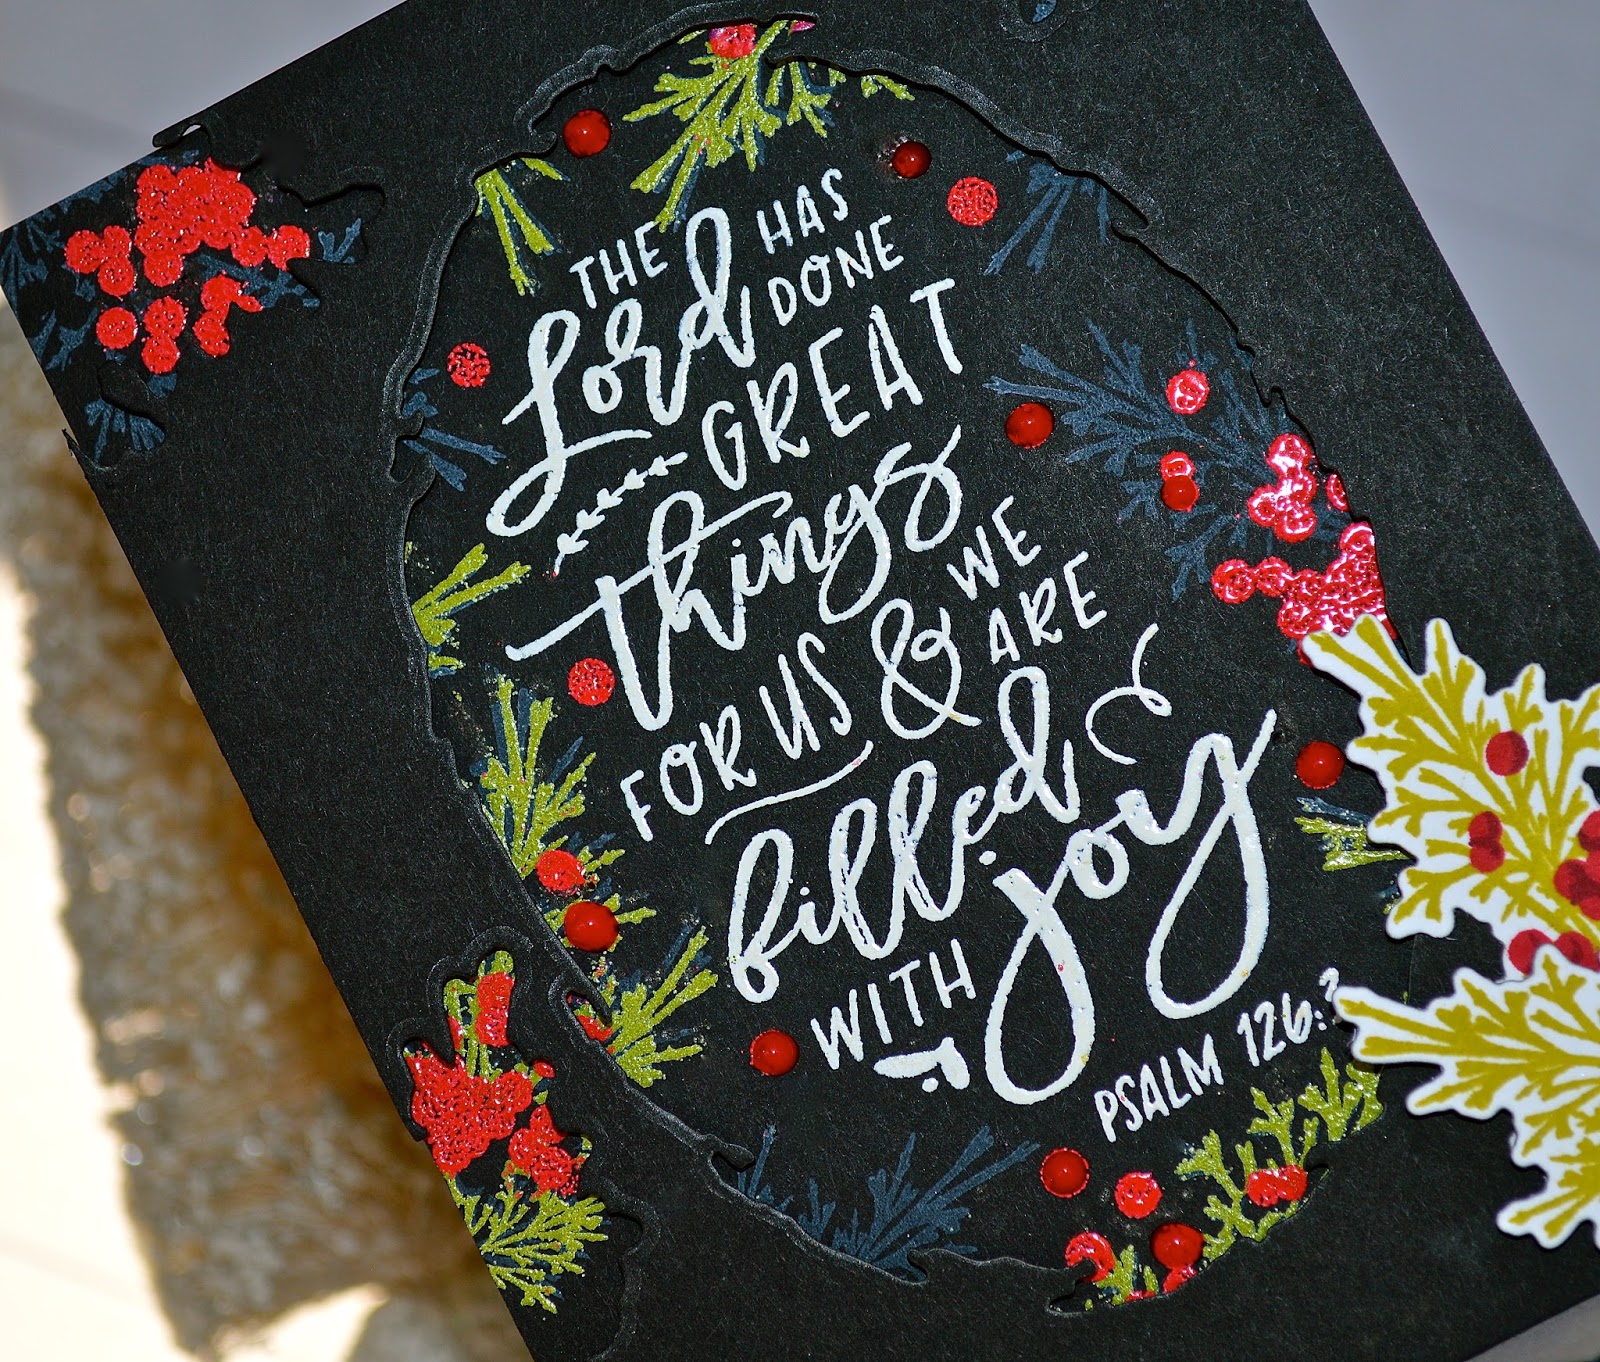 THE Lord HAS DONE
GREAT
things
FOR US & WE ARE
filled
WITH joy
PSALM 126:3